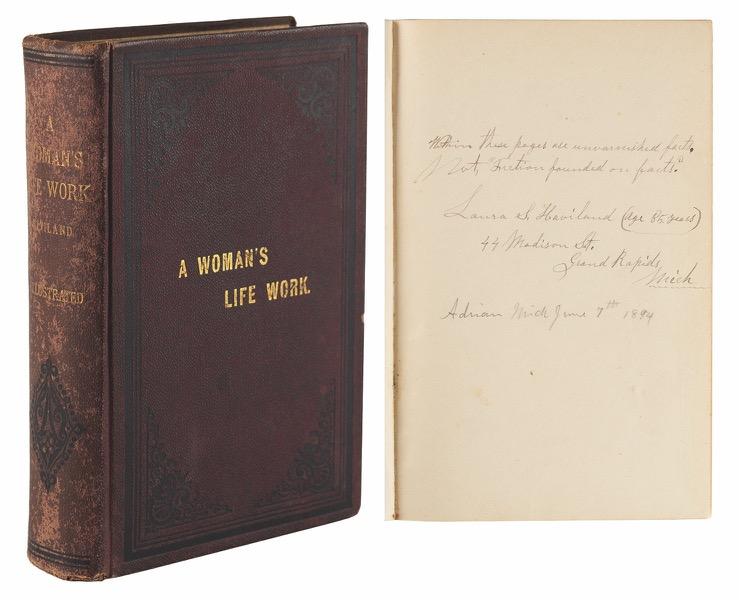 A
WOMAN'S
LIFE WORK
HAVILAND
ILLUSTRATED
A WOMAN'S
LIFE WORK.
Within these pages are unvarnished facts.
Not, "Fiction founded on facts."
Laura S. Haviland (age 85 years)
44 Madison St.
Grand Rapids
Mich
Adrian Mich June 7th 1894